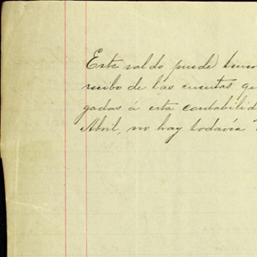 Este saldo puede
recibo de las cuentas
gadas á esta contabilid
Abril, no hay todavía